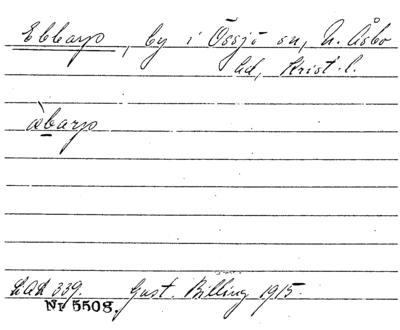 Ebbarp, by i Össjö sn, N. Åsbo
hd, Krist. l.
àbarp
LAL 339. Gust. Billing 1915.
Nr 5508.